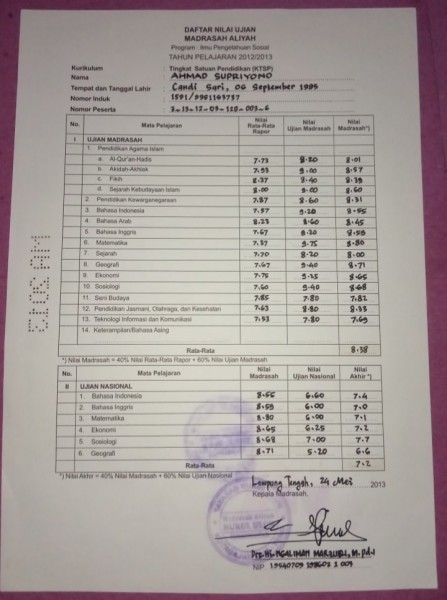 DAFTAR NILAI UJIAN
MADRASAH ALIYAH
Program : Ilmu Pengetahuan Sosial
TAHUN PELAJARAN 2012/2013
Kurikulum : Tingkat Satuan Pendidikan (KTSP)
Nama : AHMAD SUPRIYONO
Tempat dan Tanggal Lahir : Candi Sari, 06 September 1995
Nomor Induk :
Nomor Peserta :
No. Mata Pelajaran Nilai Rata-Rata Rapor Nilai Ujian Madrasah Nilai Madrasah*)
I UJIAN MADRASAH
1. Pendidikan Agama Islam
a. Al-Qur'an-Hadis 7.73 8.20 8.01
b. Akidah-Akhlak 7.93 9.00 8.57
c. Fikih 8.37 8.40 8.39
d. Sejarah Kebudayaan Islam 8.00 9.00 8.60
2. Pendidikan Kewarganegaraan 7.87 8.60 8.31
3. Bahasa Indonesia 7.57 9.20 8.55
4. Bahasa Arab 8.23 8.60 8.45
5. Bahasa Inggris 7.67 9.20 8.59
6. Matematika 7.37 9.75 8.80
7. Sejarah 7.70 8.20 8.00
8. Geografi 7.67 9.40 8.71
9. Ekonomi 7.75 9.25 8.65
10. Sosiologi 7.60 9.40 8.68
11. Seni Budaya 7.85 7.80 7.82
12. Pendidikan Jasmani, Olahraga, dan Kesehatan 7.63 8.80 8.33
13. Teknologi Informasi dan Komunikasi 7.53 7.80 7.69
14. Keterampilan/Bahasa Asing
Rata-Rata 8.38
*) Nilai Madrasah = 40% Nilai Rata-Rata Rapor + 60% Nilai Ujian Madrasah
No. Mata Pelajaran Nilai Madrasah Nilai Ujian Nasional Nilai Akhir *)
II UJIAN NASIONAL
1. Bahasa Indonesia 8.55 6.60 7.4
2. Bahasa Inggris 8.59 6.00 7.0
3. Matematika 8.80 6.00 7.1
4. Ekonomi 8.65 6.25 7.2
5. Sosiologi 8.68 7.00 7.7
6. Geografi 8.71 5.20 6.6
Rata-Rata 7.2
*) Nilai Akhir = 40% Nilai Madrasah + 60% Nilai Ujian Nasional
Lampung Tengah, 24 Mei 2013
Kepala Madrasah,
NIP